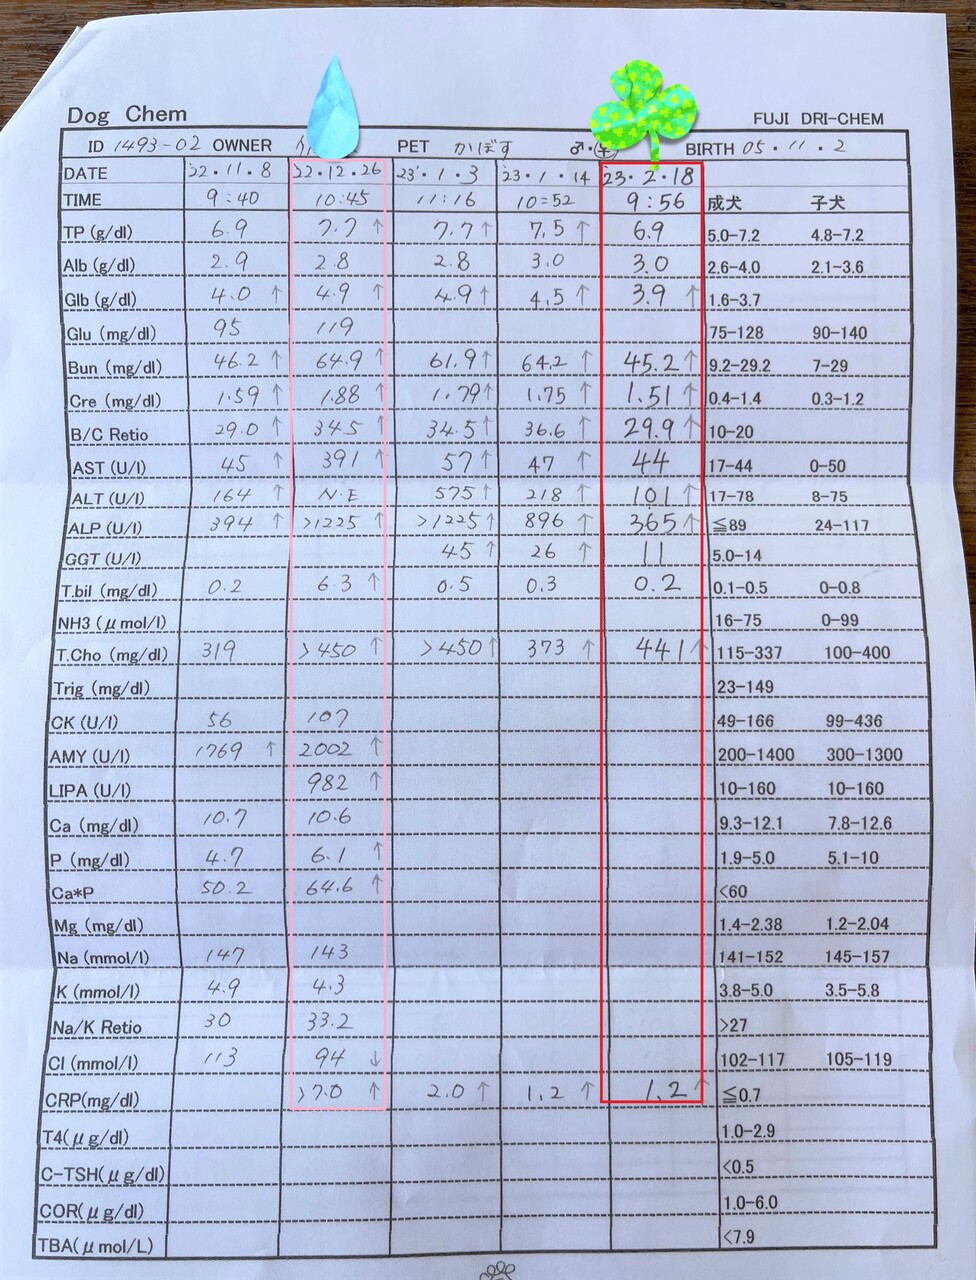 Dog Chem
FUJI DRI-CHEM
ID 1493-02 OWNER PET かぼす ♂・♀ BIRTH 05・11・2
DATE '22・11・8 '22・12・26 23'・1・3 '23・1・14 '23・2・18
TIME 9:40 10:45 11:16 10:52 9:56 成犬 子犬
TP (g/dl) 6.9 7.7 ↑ 7.7 ↑ 7.5 ↑ 6.9 5.0-7.2 4.8-7.2
Alb (g/dl) 2.9 2.8 2.8 3.0 3.0 2.6-4.0 2.1-3.6
Glb (g/dl) 4.0 ↑ 4.9 ↑ 4.9 ↑ 4.5 ↑ 3.9 ↑ 1.6-3.7
Glu (mg/dl) 95 119 75-128 90-140
Bun (mg/dl) 46.2 ↑ 64.9 ↑ 61.9 ↑ 64.2 ↑ 45.2 ↑ 9.2-29.2 7-29
Cre (mg/dl) 1.59 ↑ 1.88 ↑ 1.79 ↑ 1.75 ↑ 1.51 ↑ 0.4-1.4 0.3-1.2
B/C Retio 29.0 ↑ 34.5 ↑ 34.5 ↑ 36.6 ↑ 29.9 ↑ 10-20
AST (U/l) 45 ↑ 391 ↑ 57 ↑ 47 ↑ 44 17-44 0-50
ALT (U/l) 164 ↑ N.E 575 ↑ 218 ↑ 101 ↑ 17-78 8-75
ALP (U/l) 394 ↑ >1225 ↑ >1225 ↑ 896 ↑ 365 ↑ ≦89 24-117
GGT (U/l) 45 ↑ 26 ↑ 11 5.0-14
T.bil (mg/dl) 0.2 6.3 ↑ 0.5 0.3 0.2 0.1-0.5 0-0.8
NH3 (μmol/l) 16-75 0-99
T.Cho (mg/dl) 319 >450 ↑ >450 ↑ 373 ↑ 441 ↑ 115-337 100-400
Trig (mg/dl) 23-149
CK (U/l) 56 107 49-166 99-436
AMY (U/l) 1769 ↑ 2002 ↑ 200-1400 300-1300
LIPA (U/l) 982 ↑ 10-160 10-160
Ca (mg/dl) 10.7 10.6 9.3-12.1 7.8-12.6
P (mg/dl) 4.7 6.1 ↑ 1.9-5.0 5.1-10
Ca*P 50.2 64.6 ↑ <60
Mg (mg/dl) 1.4-2.38 1.2-2.04
Na (mmol/l) 147 143 141-152 145-157
K (mmol/l) 4.9 4.3 3.8-5.0 3.5-5.8
Na/K Retio 30 33.2 >27
Cl (mmol/l) 113 94 ↓ 102-117 105-119
CRP(mg/dl) >7.0 ↑ 2.0 ↑ 1.2 ↑ 1.2 ↑ ≦0.7
T4(μg/dl) 1.0-2.9
C-TSH(μg/dl) <0.5
COR(μg/dl) 1.0-6.0
TBA(μmol/L) <7.9